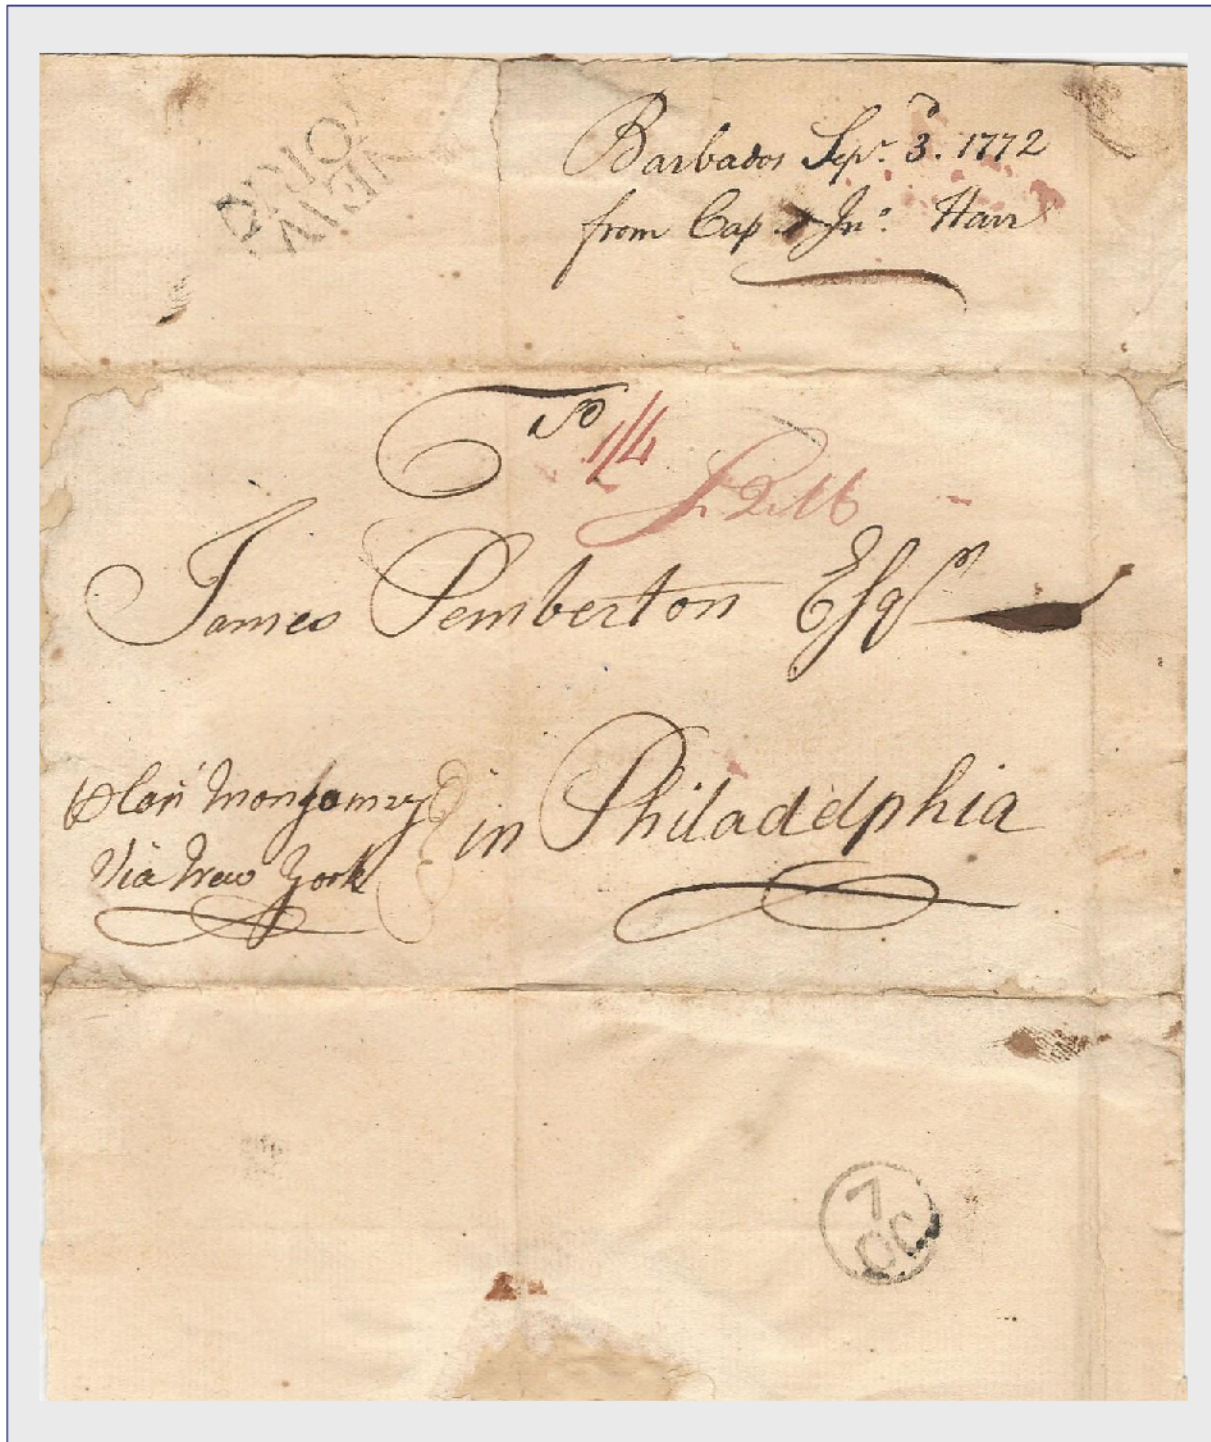 NEW
YORK
Barbados Sepr. 3d. 1772
from Cap Jno. Harr
To
1/4
James Pemberton Esqr
Montgomery
Via New York
in Philadelphia
7
OC